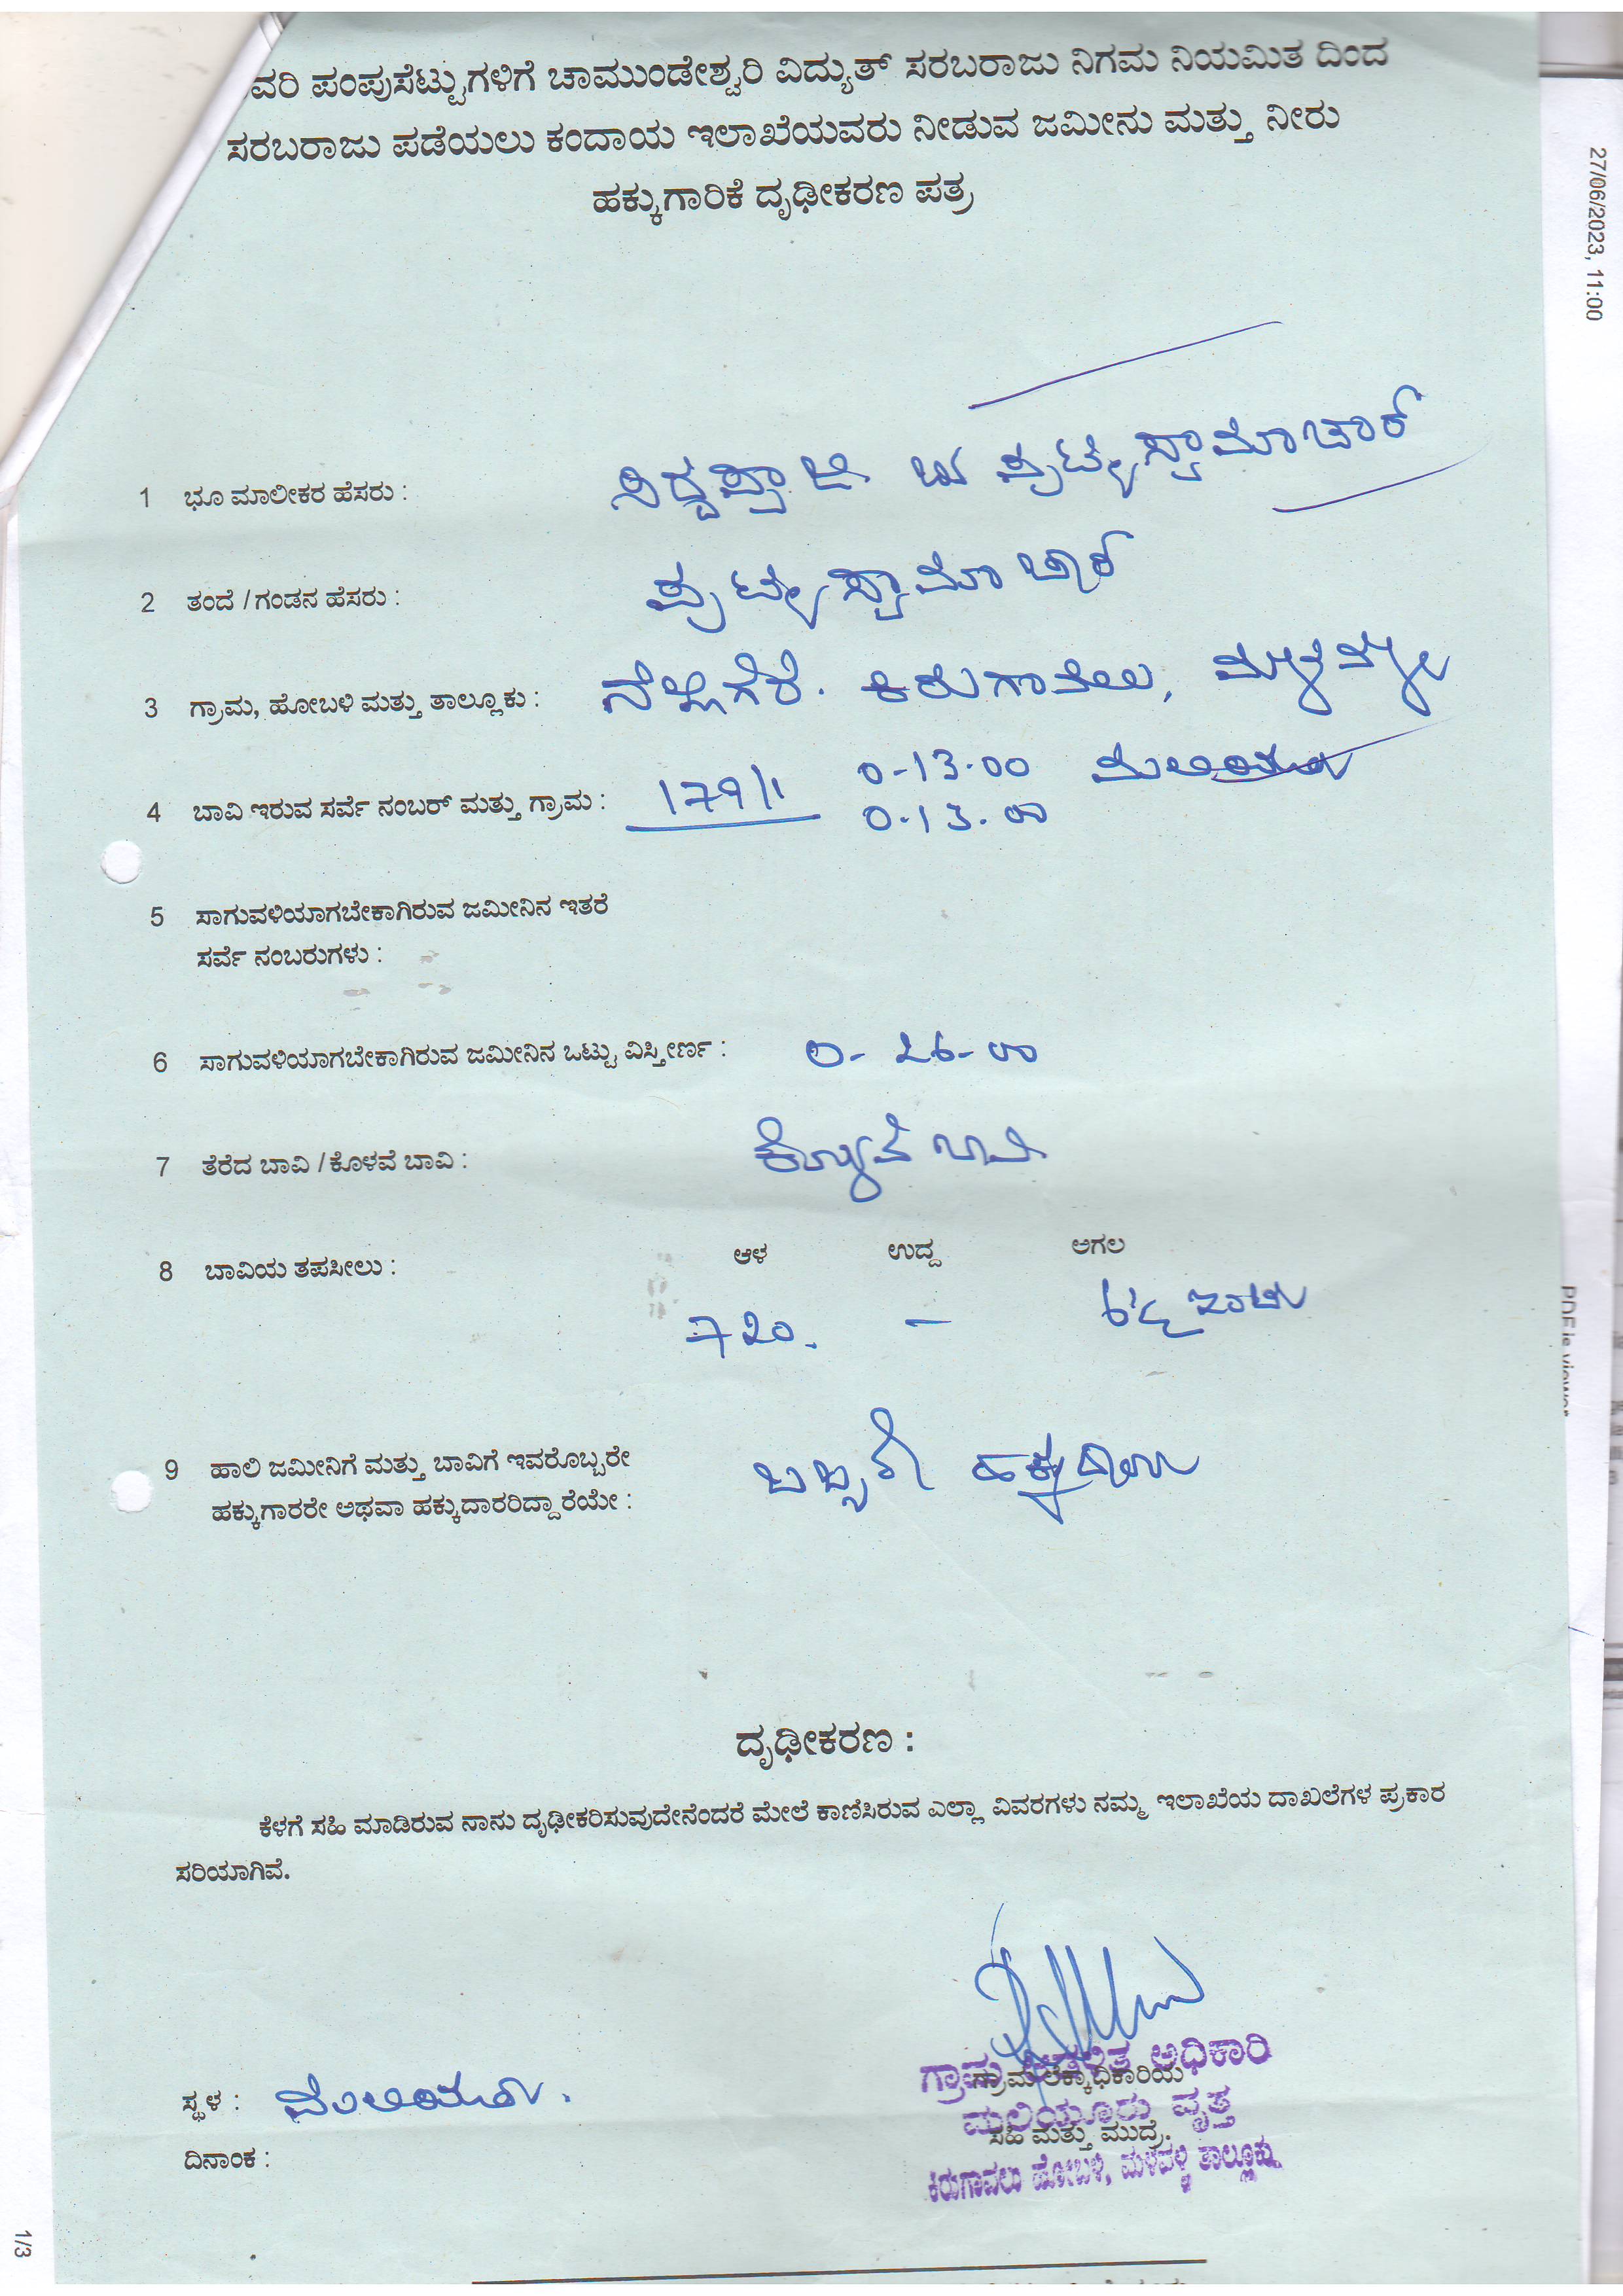 ವರಿ ಪಂಪುಸೆಟ್ಟುಗಳಿಗೆ ಚಾಮುಂಡೇಶ್ವರಿ ವಿದ್ಯುತ್ ಸರಬರಾಜು ನಿಗಮ ನಿಯಮಿತ ದಿಂದ
ಸರಬರಾಜು ಪಡೆಯಲು ಕಂದಾಯ ಇಲಾಖೆಯವರು ನೀಡುವ ಜಮೀನು ಮತ್ತು ನೀರು
ಹಕ್ಕುಗಾರಿಕೆ ದೃಢೀಕರಣ ಪತ್ರ
27/06/2023, 11:00
1 ಭೂ ಮಾಲೀಕರ ಹೆಸರು : ಸಿದ್ದಪ್ಪಾಜಿ ಪುಟ್ಟಸ್ವಾಮಾಚಾರ್
2 ತಂದೆ / ಗಂಡನ ಹೆಸರು : ಪುಟ್ಟಸ್ವಾಮಾಚಾರ್
3 ಗ್ರಾಮ, ಹೋಬಳಿ ಮತ್ತು ತಾಲ್ಲೂಕು : ನೆಲ್ಲಿಗೆರೆ. ಕಿರುಗಾವಲು, ಮಳವಳ್ಳಿ
4 ಬಾವಿ ಇರುವ ಸರ್ವೆ ನಂಬರ್ ಮತ್ತು ಗ್ರಾಮ : 179/1 0-13-00 ಮಲಿಯೂರು
0-13-00
5 ಸಾಗುವಳಿಯಾಗಬೇಕಾಗಿರುವ ಜಮೀನಿನ ಇತರೆ
ಸರ್ವೆ ನಂಬರುಗಳು :
6 ಸಾಗುವಳಿಯಾಗಬೇಕಾಗಿರುವ ಜಮೀನಿನ ಒಟ್ಟು ವಿಸ್ತೀರ್ಣ : 0-26-00
7 ತೆರೆದ ಬಾವಿ / ಕೊಳವೆ ಬಾವಿ : ಕೊಳವೆ ಬಾವಿ
8 ಬಾವಿಯ ತಪಸೀಲು : ಆಳ ಉದ್ದ ಅಗಲ
720. –
9 ಹಾಲಿ ಜಮೀನಿಗೆ ಮತ್ತು ಬಾವಿಗೆ ಇವರೊಬ್ಬರೇ
ಹಕ್ಕುಗಾರರೇ ಅಥವಾ ಹಕ್ಕುದಾರರಿದ್ದಾರೆಯೇ : ಒಬ್ಬರೇ ಹಕ್ಕುದಾರರು
ದೃಢೀಕರಣ :
ಕೆಳಗೆ ಸಹಿ ಮಾಡಿರುವ ನಾನು ದೃಢೀಕರಿಸುವುದೇನೆಂದರೆ ಮೇಲೆ ಕಾಣಿಸಿರುವ ಎಲ್ಲಾ ವಿವರಗಳು ನಮ್ಮ ಇಲಾಖೆಯ ದಾಖಲೆಗಳ ಪ್ರಕಾರ
ಸರಿಯಾಗಿವೆ.
ಗ್ರಾಮ ಆಡಳಿತ ಅಧಿಕಾರಿ
ಗ್ರಾಮ ಲೆಕ್ಕಾಧಿಕಾರಿಯ
ಮಲಿಯೂರು ವೃತ್ತ
ಸಹಿ ಮತ್ತು ಮುದ್ರೆ.
ಕಿರುಗಾವಲು ಹೋಬಳಿ, ಮಳವಳ್ಳಿ ತಾಲ್ಲೂಕು
ಸ್ಥಳ : ಮಲಿಯೂರು.
ದಿನಾಂಕ :
1/3